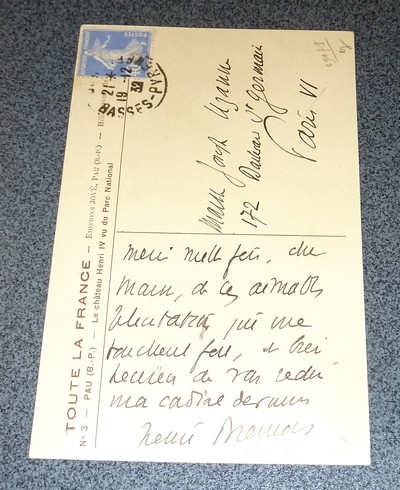 TOUTE LA FRANCE — EDITIONS JOVÉ, PAU (B.-P.) —
N° 3 — PAU (B.-P.) — Le château Henri IV vu du Parc National
21
19 -12
32
BASSES-PYR
172 Boulevard St Germain
Paris VI
Merci mille fois, cher
de ces aimables
félicitations qui me
touchent fort, et bien
heureux de vous redire
ma cordiale
Henri Bremond